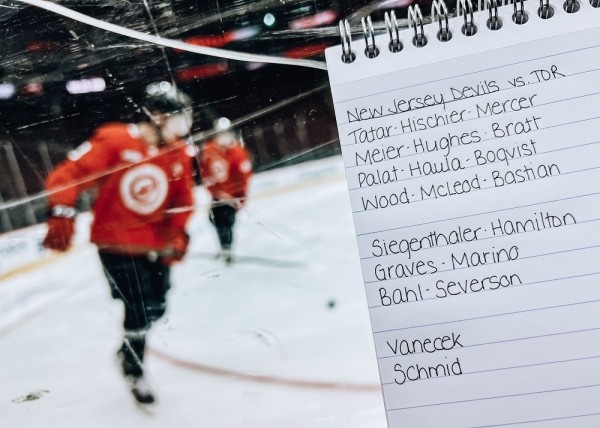 New Jersey Devils vs. TOR
Tatar - Hischier - Mercer
Meier - Hughes - Bratt
Palat - Haula - Boqvist
Wood - McLeod - Bastian
Siegenthaler - Hamilton
Graves - Marino
Bahl - Severson
Vanecek
Schmid